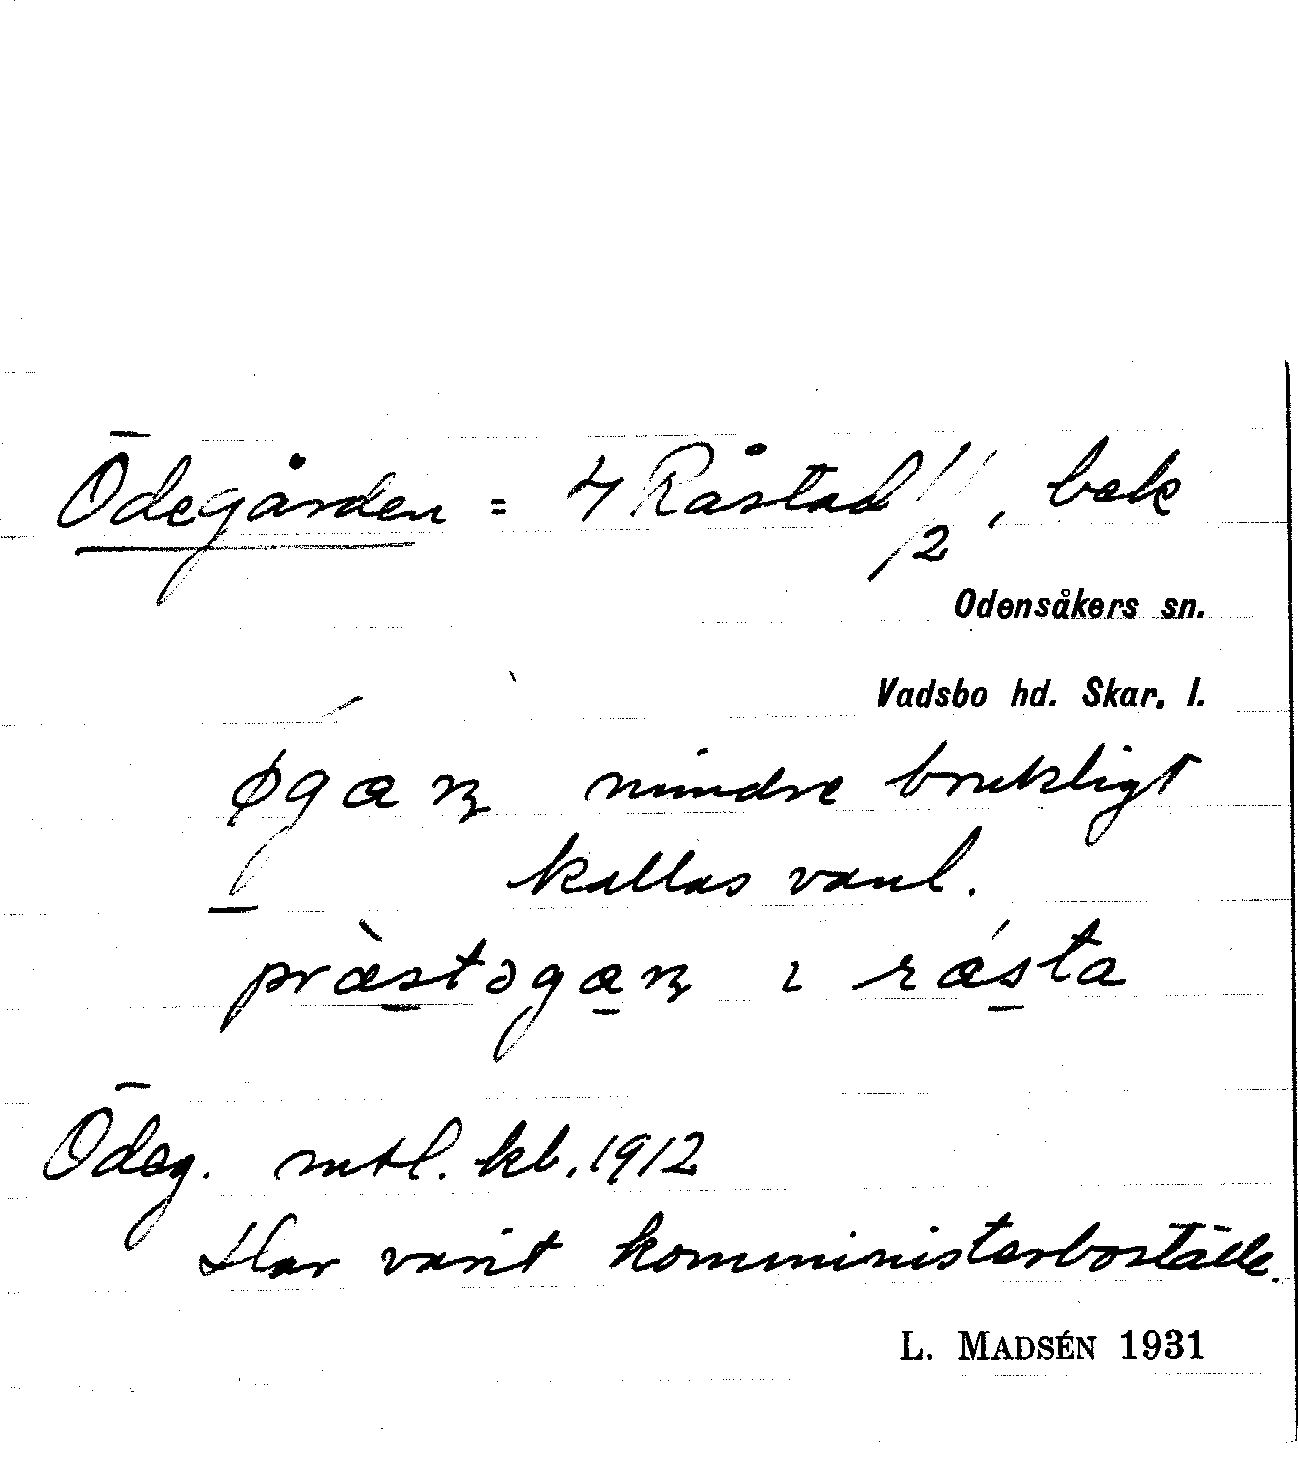 Ödegården = 4 Råstad 1/2, bek
Odensåkers sn.
Vadsbo hd. Skar. l.
mindre brukligt
kallas vanl.
prästəgaɳ i rásta
Ödeg. mtl. kb. 1912
Har varit komministerboställe.
L. MADSÉN 1931